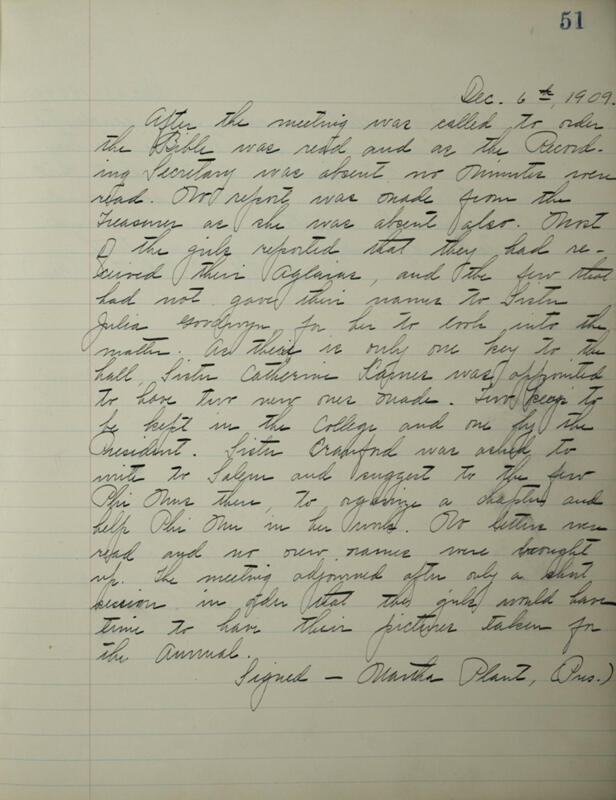 51
Dec. 6th, 1909.
After the meeting was called to order
the Bible was read and as the Record-
ing Secretary was absent no minutes were
read. No report was made from the
Treasurer as she was absent also. Most
of the girls reported that they had re-
ceived their Aglaias, and the few that
had not gave their names to Sister
Julia Goodwyn, for her to look into the
matter. As there is only one key to the
hall, Sister Catherine was appointed
to have two new ones made. Two keys to
be kept in the College and one by the
President. Sister Crawford was asked to
write to Salem and suggest to the few
Phi Mus there, to organize a chapter and
help Phi Mu in her work. No letters were
read and no new names were brought
up. The meeting adjourned after only a short
session in order that the girls would have
time to have their pictures taken for
the Annual.
Signed - Martha Plant, (Pres.)